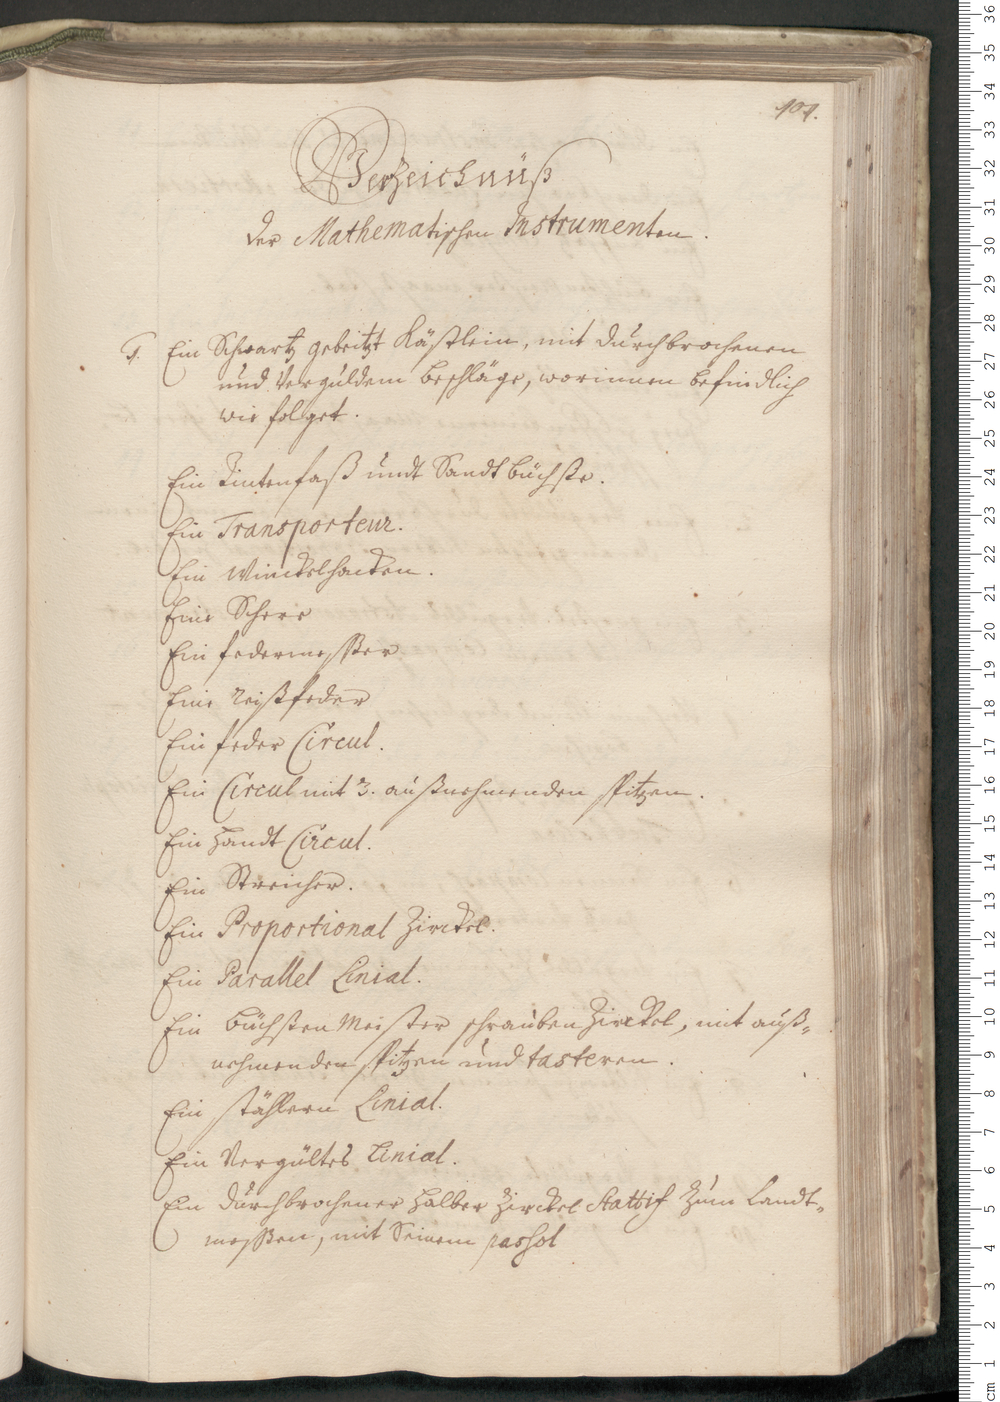 101.
Verzeichnüß
der Mathematischen Instrumenten.
1. Ein Schwartz gebeitzt Kästlein, mit durchbrochenen
und verguldem beschläge, worinnen befindlich
wie folget.
Ein Tintenfaß undt Sandt büchße.
Ein Transporteur.
Ein Winckelhacken.
Eine Schere
Ein federmesser
Eine reißfeder
Ein feder Circul.
Ein Circul mit 3. außnehmenden spitzen.
Ein Handt Circul.
Ein Streicher.
Ein Proportional Zirckel.
Ein Parallel Linial.
Ein büchsten Meister schrauben Zirckel, mit auß-
nehmenden spitzen und tasteren.
Ein stählern Linial.
Ein Vergültes Linial.
Ein durchbrochener halber Zirckel Stattif zum Landt-
messen, mit Seinem